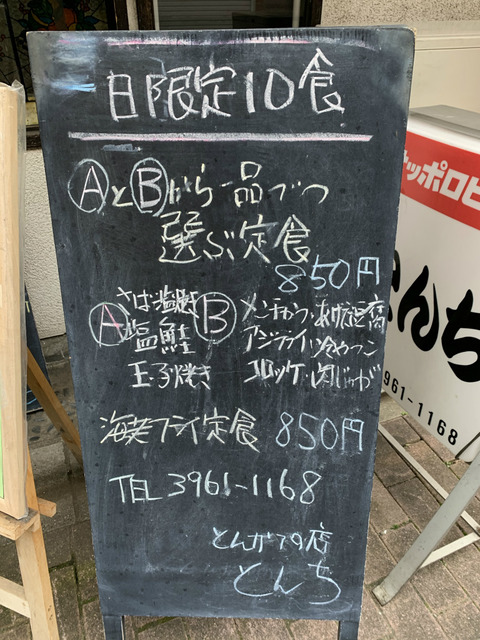 日限定10食
ⒶとⒷから一品づつ
選ぶ定食
850円
Ⓐ さば塩焼
塩鮭
玉子焼き
Ⓑ メンチカツ・あげだし豆腐
アジフライ・冷やっこ
コロッケ・肉じゃが
海老フライ定食 850円
TEL 3961-1168
とんかつの店
とんち
サッポロビ
んち
961-1168